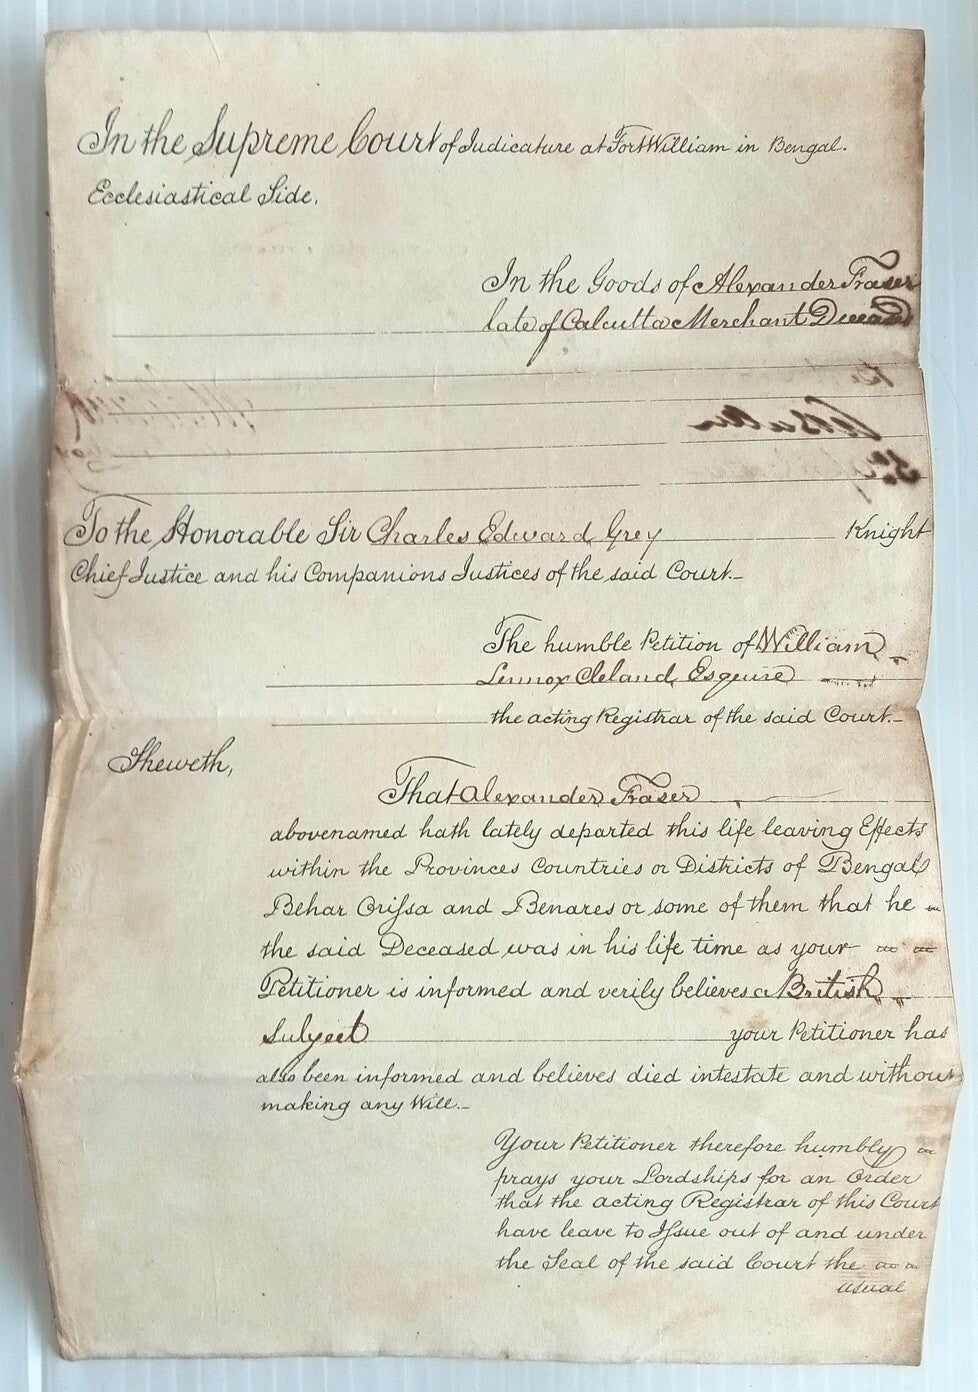 In the Supreme Court of Judicature at Fort William in Bengal.
Ecclesiastical Side.
In the Goods of Alexander Fraser
late of Calcutta Merchant Deceased
To the Honorable Sir Charles Edward Grey Knight
Chief Justice and his Companions Justices of the said Court.
The humble Petition of William
Lennox Cleland Esquire
the acting Registrar of the said Court.
Sheweth,
That Alexander Fraser
abovenamed hath lately departed this life leaving Effects
within the Provinces Countries or Districts of Bengal
Behar Orifsa and Benares or some of them that he
the said Deceased was in his life time as your
Petitioner is informed and verily believes a British
Subject your Petitioner has
also been informed and believes died intestate and without
making any Will.
Your Petitioner therefore humbly
prays your Lordships for an Order
that the acting Registrar of this Court
have leave to Ifsue out of and under
the Seal of the said Court the
usual